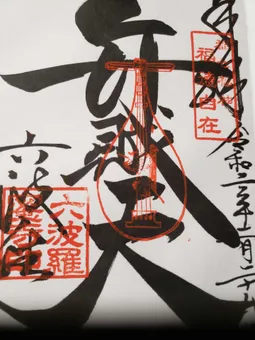 奉拝 令和二年十一月二十
福徳自在
弁財天
六波
六波羅
蜜寺印